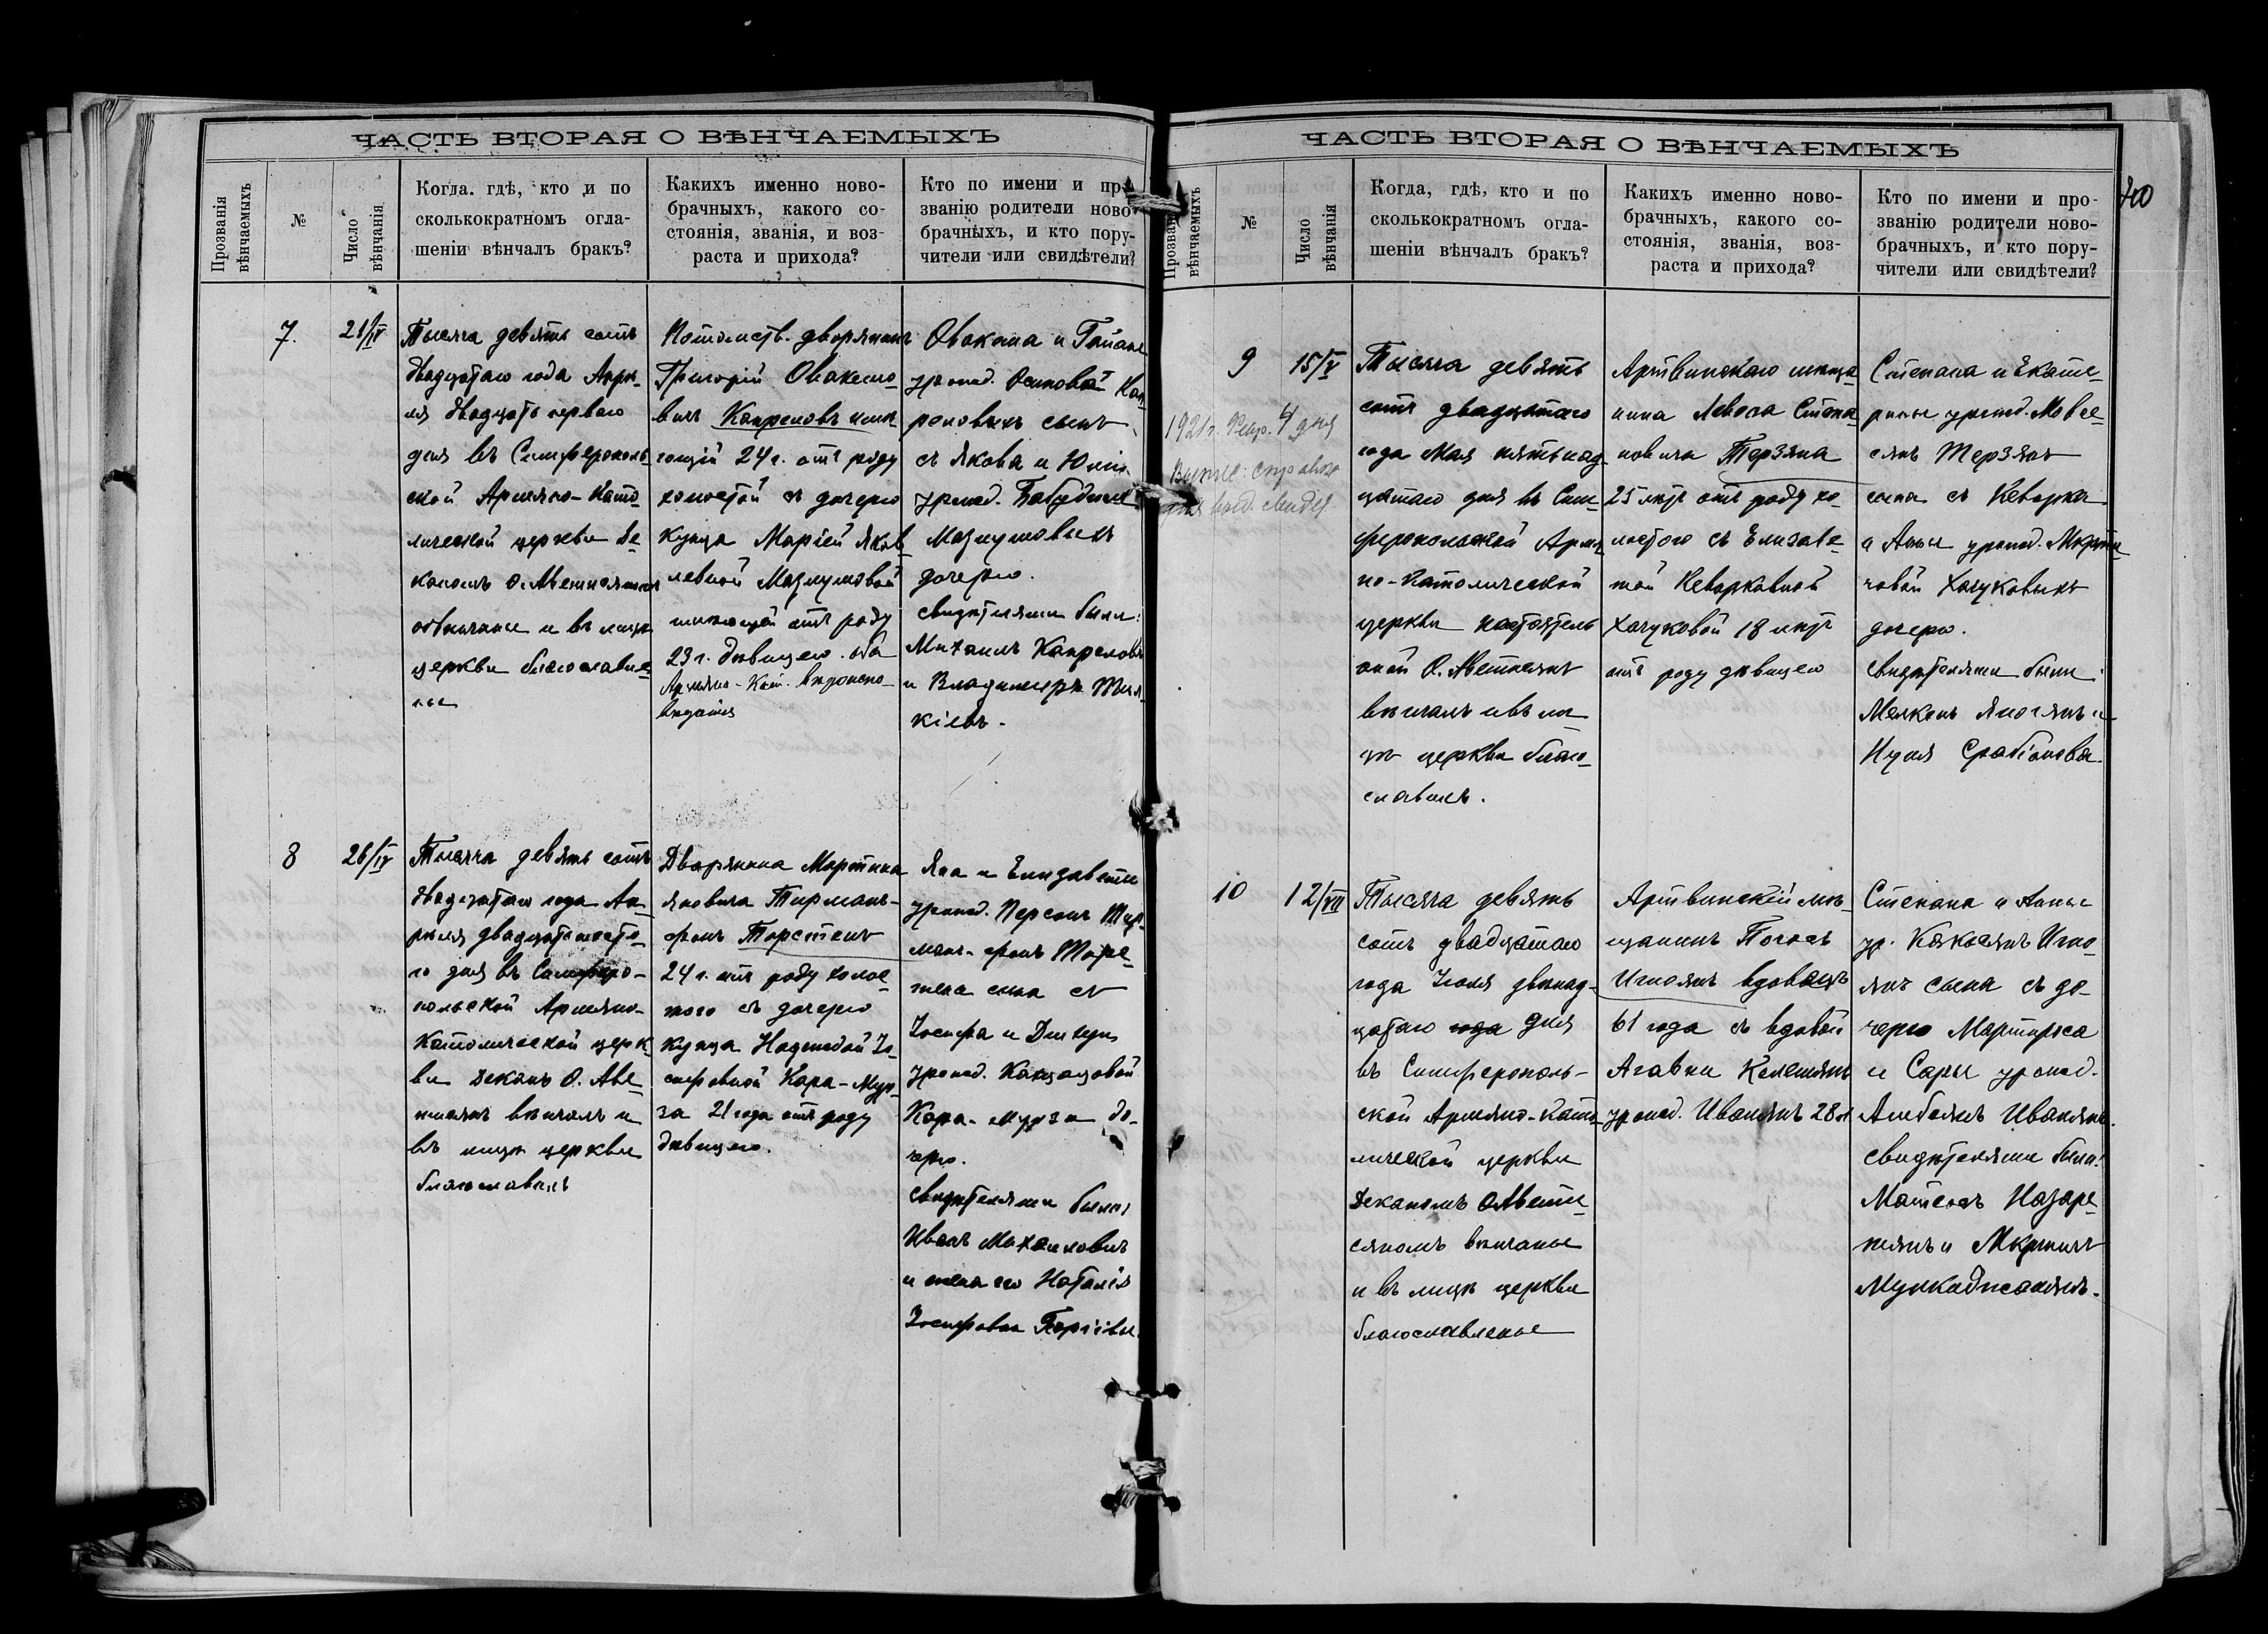 ЧАСТЬ ВТОРАЯ О ВѢНЧАЕМЫХЪ
Прозванія
вѣнчаемыхъ
№
Число
вѣнчанія
Когда, гдѣ, кто и по
сколькократномъ огла-
шеніи вѣнчалъ бракъ?
Какихъ именно ново-
брачныхъ, какого со-
стоянія, званія, и воз-
раста и прихода?
Кто по имени и про-
званію родители ново-
брачныхъ, и кто пору-
чители или свидѣтели?
7.
21/IV
Тысяча девять сотъ
двадцатаго года Апрѣ-
ля двадцать перваго
дня въ Симферополь-
ской Армяно-Като-
лической церкви Де-
каномъ О. Аветисяномъ
обвѣнчаны и въ лицѣ
церкви благославле-
ны
Потомств. дворянинъ
Григорій Овакимо-
вичъ Капреловъ имѣ-
ющій 24 г. отъ роду
холостой съ дочерью
купца Маріей Яков-
левной Мазлумовой
имѣющей отъ роду
23 г. дѣвицею. оба
Армяно-Кат. вѣроиспо-
вѣданія
Овакима и
урожд. Ка-
преловыхъ сынъ
съ Якова и Юліи
урожд.
Мазлумовыхъ
дочерью.
свидѣтелями были:
Михаилъ Капреловъ
и Владимиръ
кіевъ.
8
26/IV
Тысяча девять сотъ
двадцатаго года Ап-
рѣля двадцать шесто-
го дня въ Симферо-
польской Армяно-
Католической церк-
ви Деканъ О. Аве-
тисянъ вѣнчалъ и
въ лицѣ церкви
благославилъ
Дворянина Мартина
Яновича Тирманъ-
фонъ Торстенъ
24 г. отъ роду холос-
того съ дочерью
купца Надеждой Іо-
сифовной Кара-Мур-
за 21 года отъ роду
дѣвицею.
Яна и Елизаветы
урожд. Персонъ Тир-
манъ-фонъ Торс-
тена сына съ
Іосифа и
урожд.
Кара-Мурза до-
черью.
Свидѣтелями были:
Иванъ Михаиловичъ
и жена его Наталія
Іосифовна
ЧАСТЬ ВТОРАЯ О ВѢНЧАЕМЫХЪ
40
вѣнчаемыхъ
№
Число
вѣнчанія
Когда, гдѣ, кто и по
сколькократномъ огла-
шеніи вѣнчалъ бракъ?
Какихъ именно ново-
брачныхъ, какого со-
стоянія, званія, воз-
раста и прихода?
Кто по имени и про-
званію родители ново-
брачныхъ, и кто пору-
чители или свидѣтели?
1921 г. 4 дня
9
15/V
Тысяча девять
сотъ двадцатаго
года Мая пятьнад-
цатаго дня въ Сим-
феропольской Армя-
но-Католической
церкви настоятель
оной О. Аветисянъ
вѣнчалъ и въ ли-
цѣ церкви благо-
славилъ.
Артвинскаго мѣща-
нина Левона Степа-
новича Терзяна
25 лѣтъ отъ роду хо-
лостого съ Елизаве-
той Кеворковной
Хачуковой 18 лѣтъ
отъ роду дѣвицею
Степана и Екате-
рины урожд. Мовсе-
сянъ Терзянъ
сына съ Кеворка
и Анны урожд. Мкрти-
човой Хачуковыхъ
дочерью.
Свидѣтелями были:
Мелконъ и
Срабіонова.
10
12/VII
Тысяча девять
сотъ двадцатаго
года Іюля двѣнад-
цатаго года дня
въ Симферополь-
ской Армяно-Като-
лической церкви
Деканомъ О. Авети-
сяномъ вѣнчаны
и въ лицѣ церкви
благославлены
Артвинскій мѣ-
щанинъ Погосъ
Игноянъ вдовецъ
61 года съ вдовой
Агавни Келешянъ
урожд. Иванянъ 28 л.
Степана и Анны
ур. Игно-
янъ сына съ до-
черью Мартироса
и Сары урожд.
Иванянъ.
свидѣтелями были:
Матеосъ Назаре-
тянъ и Мкртичъ